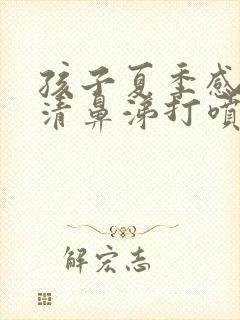 孩子夏季感
清鼻涕打噴
解宏志